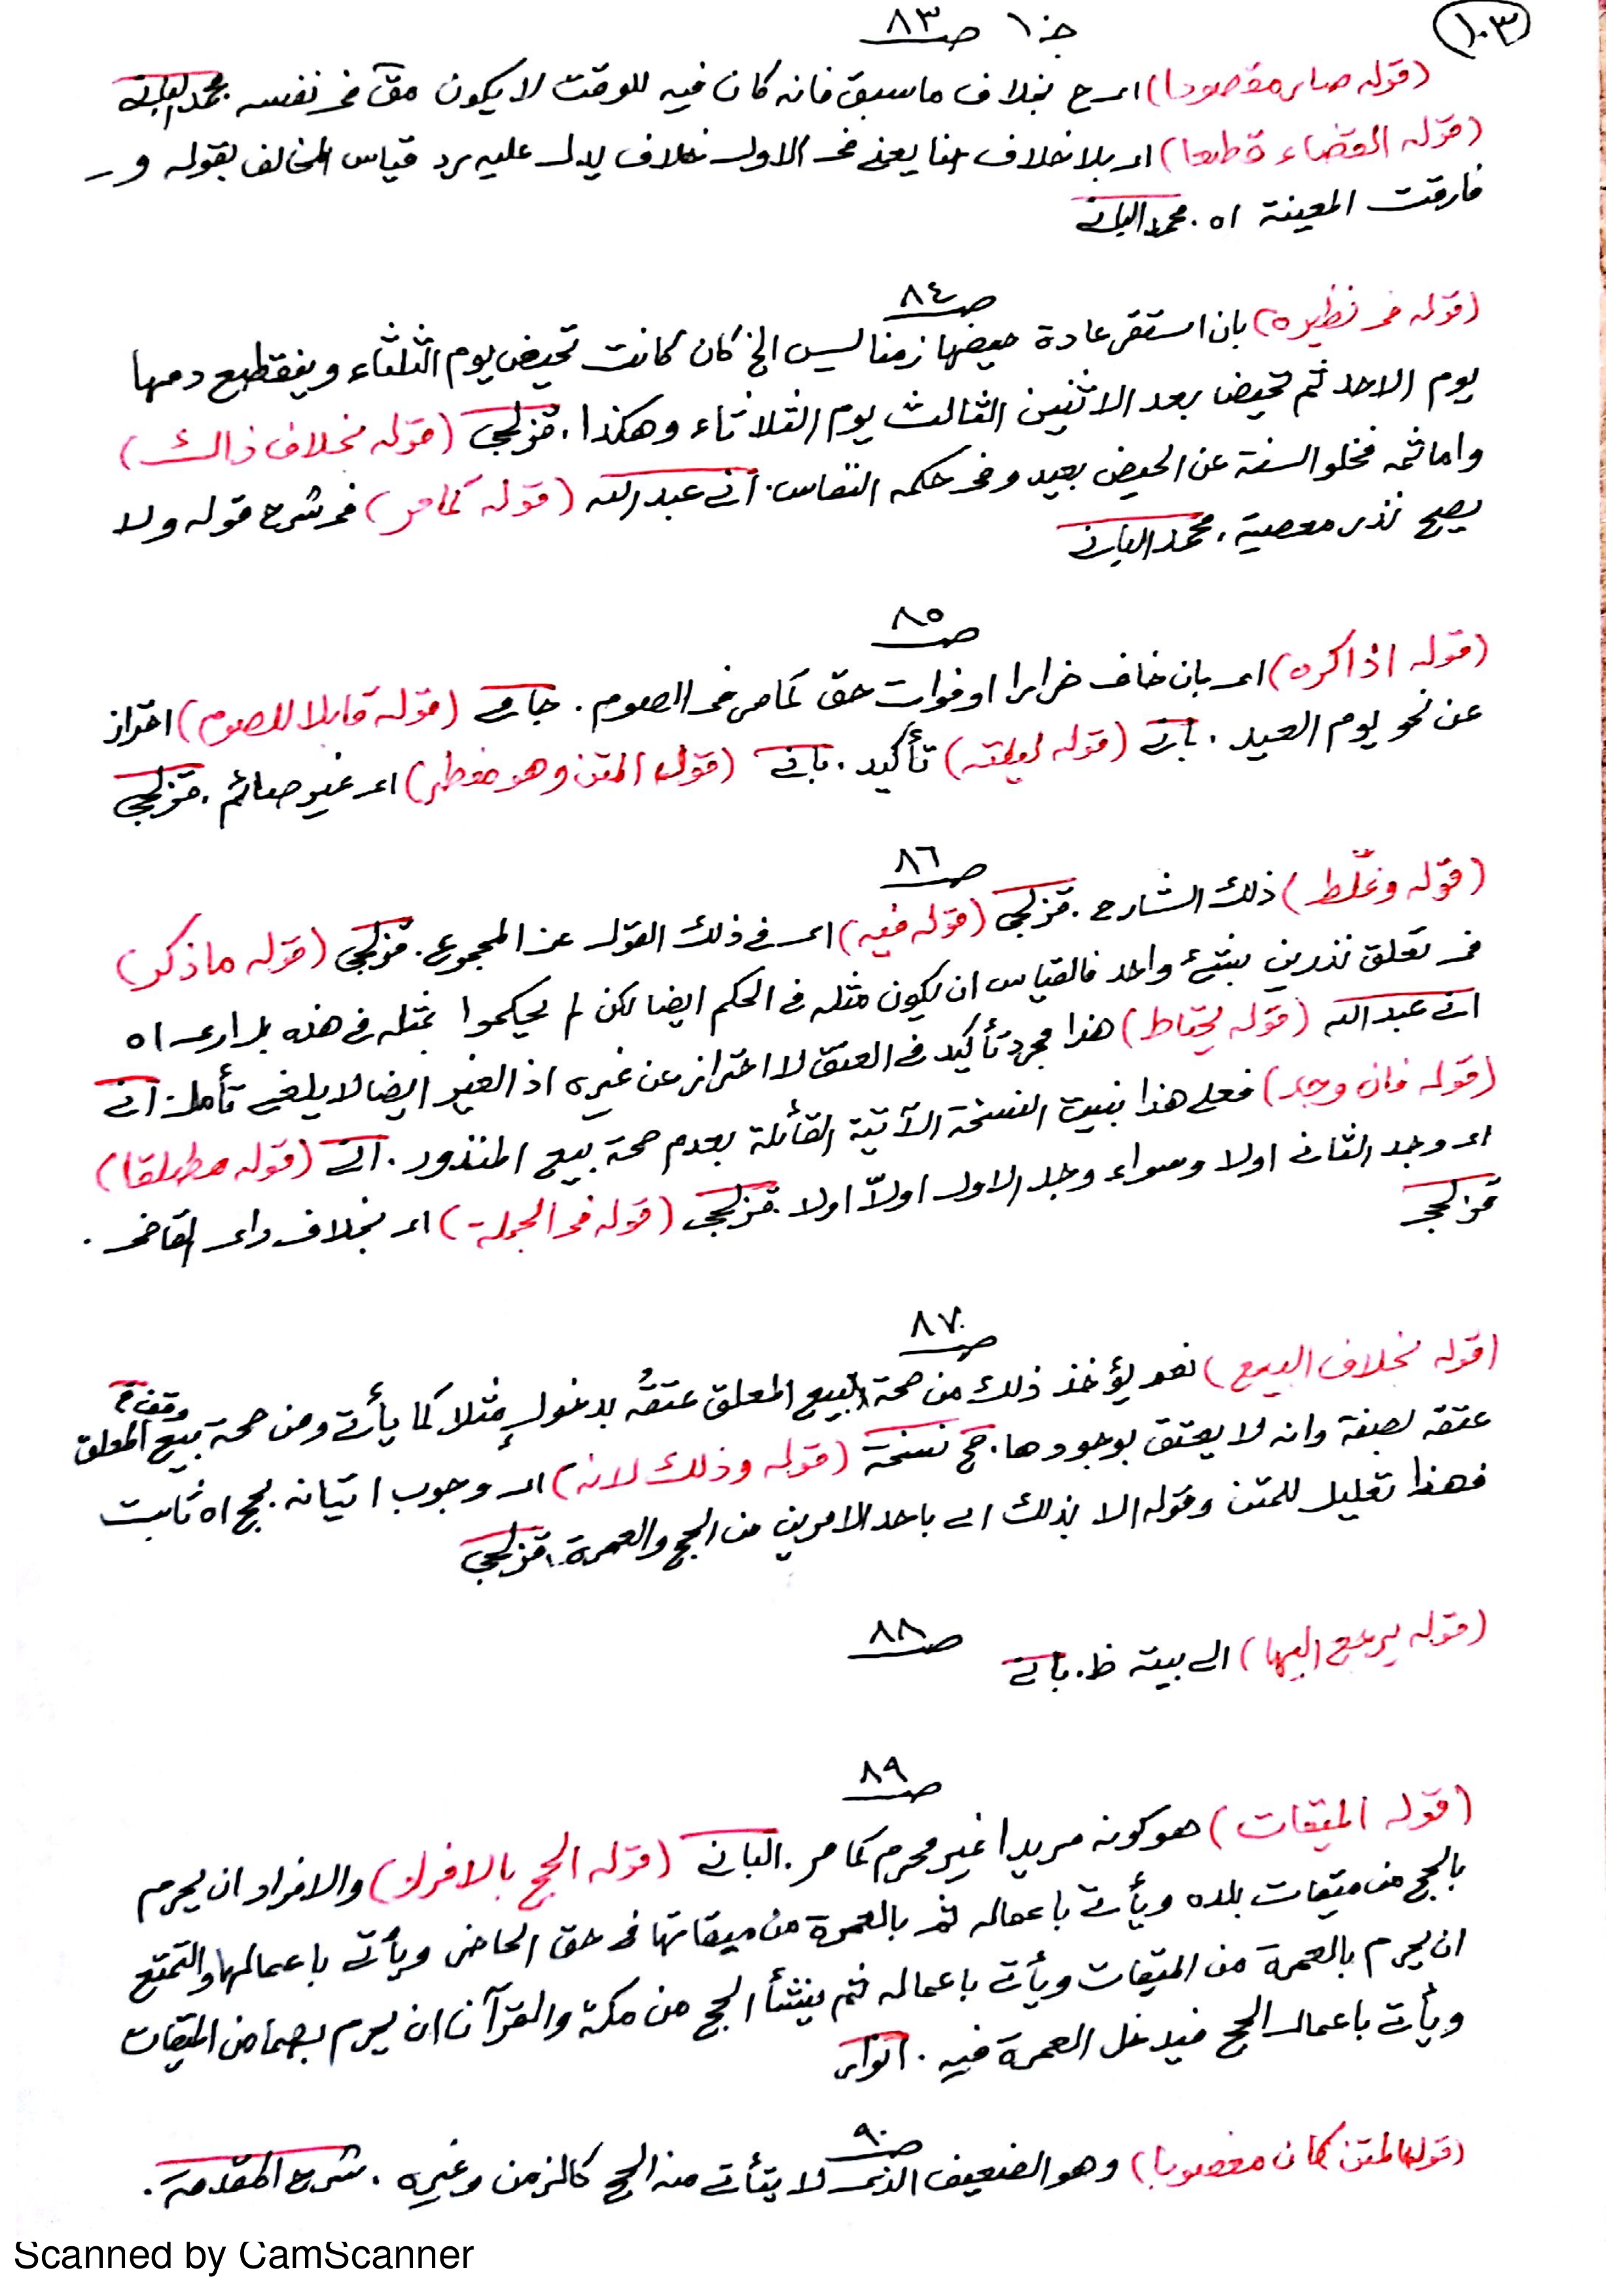 ١٠٣
جـ ١ صـ ٨٣
(قوله صار مقصودا) اى ح بخلاف ما سبق فانه كان فيه للوقت لا يكون فى نفسه محمد البانى
(قوله القضاء قطعا) اى بلا خلاف هنا يعنى فى الاول خلاف يدل عليه رد قياس المخالف بقوله و
فارقت المعينة اه. محمد البانى
صـ ٨٤
(قوله فى نظيره) بان استقر عادة حيضها زمنا ليس الخ كان كانت تحيض يوم الثلثاء وينقطع دمها
يوم الاحد ثم تحيض بعد الاثنين الثالث يوم الثلاثاء وهكذا. قزلجى (قوله بخلاف ذالك)
واما ثمه فخلو السنة عن الحيض بعيد وفى حكمه النفاس. انى عبدالله (قوله كما مر) فى شرح قوله ولا
يصح نذر معصية. محمد البانى
صـ ٨٥
(قوله اذا كره) اى بان خاف ضررا او فوات حق كما مر فى الصوم. جامى (قوله قابلا للصوم) احتراز
عن نحو يوم العيد. بانى (قوله ليلته) تأكيد. بانى (قول المتن وهو مفطر) اى غير صائم. قزلجى
صـ ٨٦
(قوله وغلّط) ذلك الشارح. قزلجى (قوله فيه) اى فى ذلك القول عن المجموع. قزلجى (قوله ما ذكر)
فى تعلق نذرين بشئ واحد فالقياس ان يكون مثله فى الحكم ايضا لكن لم يحكموا بمثله فى هذه اه
انى عبدالله (قوله يحتاط) هذا مجرد تأكيد فى العتق لا احتراز عن غيره اذ الغير ايضا لا يلغى تأمل. انى
(قوله فان وجد) فعلى هذا النسخة الآتية القائلة بعدم صحة بيع المنذور. انى (قوله مطلقا)
اى وجد الثانى اولا وسواء وجد الاول اولاً اولا. قزلجى (قوله فى الجملة) اى بخلاف راى القاضى.
قزلجى
صـ ٨٧
(قوله بخلاف البيع) نعم يؤخذ ذلك من صحة البيع المعلق عتقُه بدخولٍ مثلا كما يأتى ومن صحة بيع المعلق
عتقه لصفة وانه لا يعتق بوجودها. حج نسخة (قوله وذلك لانه) اى وجوب اتيانه بحج اه ثابت
فهذا تعليل للمتن وقوله الا بذلك اى باحد الامرين من الحج والعمرة. قزلجى
صـ ٨٨
(قوله يرجع اليها) الى بيته ظ. بانى
صـ ٨٩
(قوله الميقات) هو كونه مريدا غير محرم كما مر. البانى (قوله الحج بالافراد) والافراد ان يحرم
بالحج من ميقات بلده ويأتى باعماله ثم بالعمرة من ميقاتها فى حق الحاضر ويأتى باعمالها والتمتع
ان يحرم بالعمرة من الميقات ويأتى باعماله ثم ينشأ الحج من مكة والقرآن ان يحرم بهما من الميقات
ويأتى باعمال الحج فيدخل العمرة فيه. انوار
صـ ٩٠
(قول المتن كان معضوبا) وهو الضعيف الذى لا يتأتى منه الحج كالزمن وغيره. شرح المقدمة.
Scanned by CamScanner